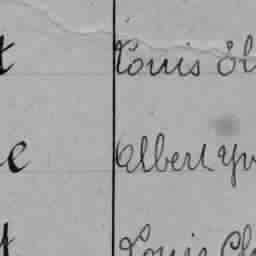 t Louis
e Albert Yv
Louis Ch